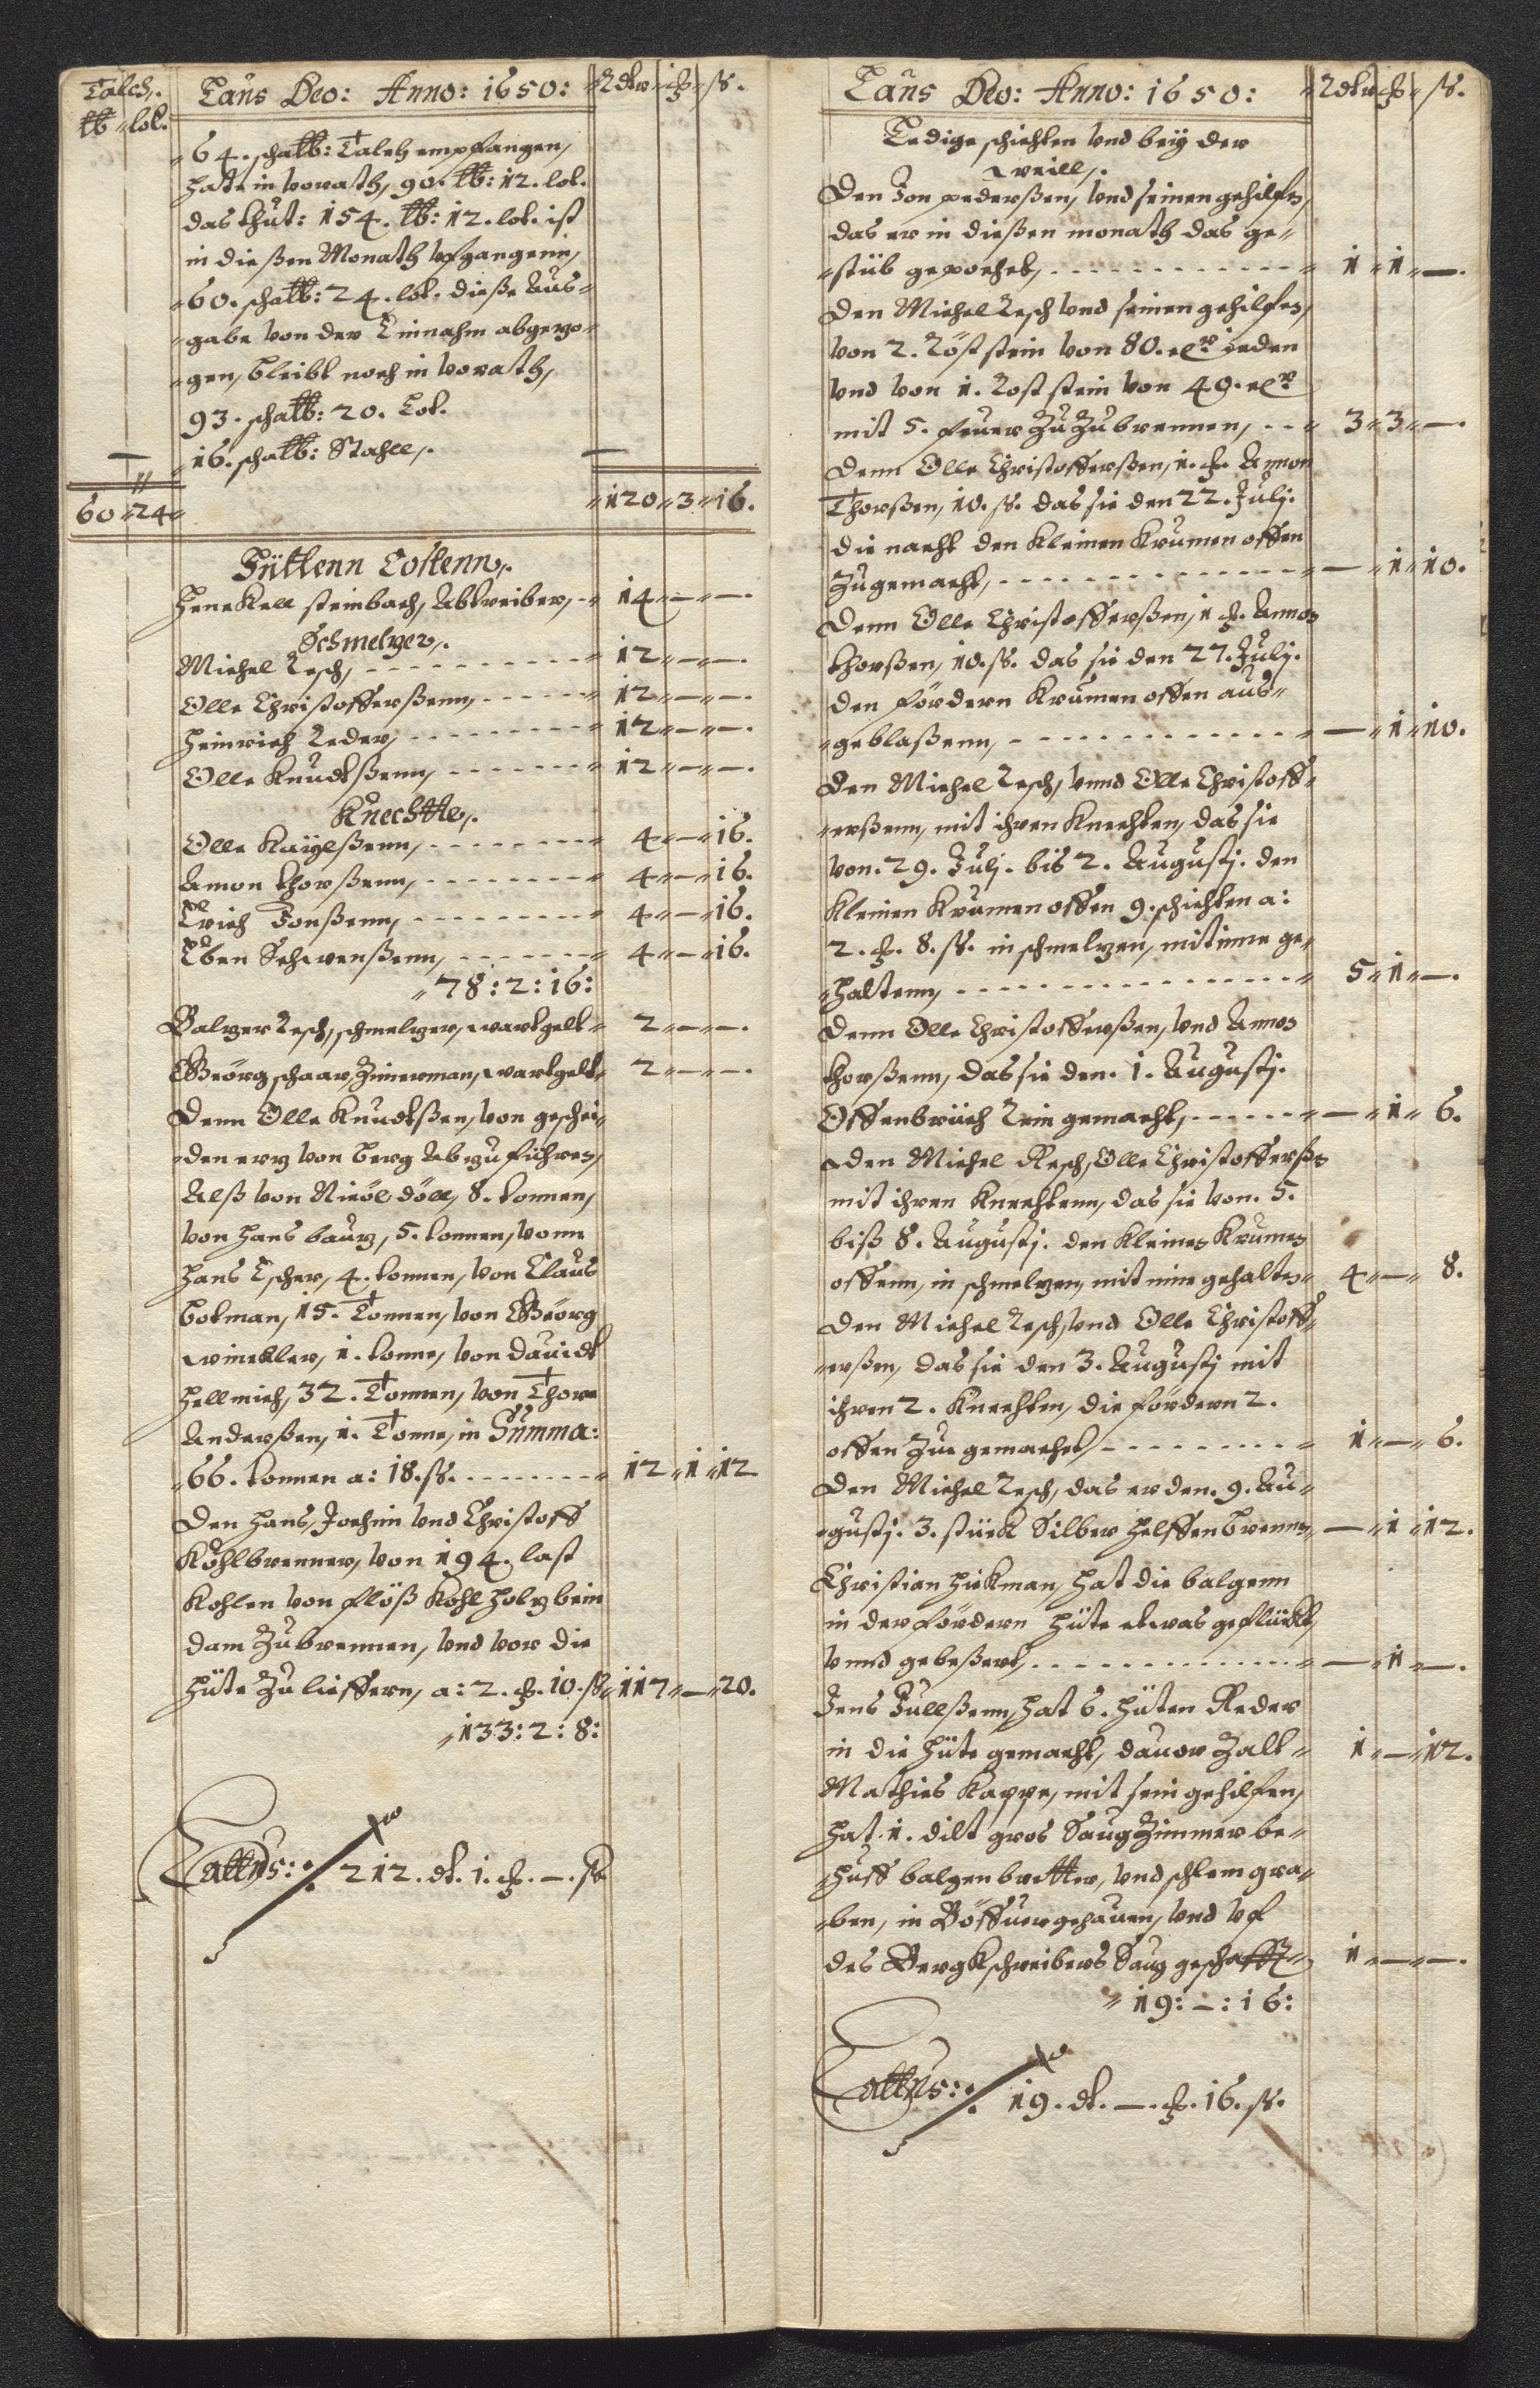 Talch,. Laus Deo: Anno: 1650: Rdtr ƶ ß.
℔ lot.
64. schatt℔: Talch empfangen,
hate in vorath, 90. ℔: 12. lot.
das thut: 154. ℔: 12. lot. ist
in dießen Monath ufgangenn,
60. scha℔: 24. lot. dieße Aus-
gabe von der Einnahm abgezo-
gen, bleibt noch in vorath,
93. scha℔: 20. Lot.
16. scha℔: Stahll,.
60 24 120 3 16.
Hüttenn Costenn,.
Henckell steinbach, Abtreiber, 14 — —.
Schmelzer,.
Michel Resch, 12 — —.
Olle Christofferßenn, 12 — —.
Heinrich Reder, 12 — —.
Olle Knudtßenn, 12 — —.
Knechtte,.
Olle Kaÿelßenn, 4 — 16.
Amon thorßenn, 4 — 16.
Erich Jonßenn, 4 — 16.
Eben Schwenßenn, 4 — 16.
78: 2: 16:
Balzer Resch, schmelzer, wartgelt 2 — —.
Georg schaar, Zimerman, wartgelt 2 — —.
Denn Olle Knudtßen, von geschei-
den erz von berg Abzu führen,
Alß von Nicöl döll, 8. tonnen,
von Hans baurz, 5. tonnen, vonn
Hans Escher, 4. tonnen, von Claus
botman, 15. Tonnen, von Georg
winckler, 1. tonne, von dauidt
Hellmich, 32. Tonnen, von Thore
Anderßen, 1. Tonne, in Summa:
66. tonnen a: 18. ß. 12 1 12
Den Hans, Jochim und Christoff
Kohlbrenner, von 194. last
Kohlen von flöß Kohl holz bein
dam Zu brennen, und vor die
Hüte Zu lieffern, a: 2. ƶ. 10. ß 117 — 20.
133: 2: 8:
Lattus: 212. dt. 1. ƶ. —. ß
Laus Deo: Anno: 1650: Rdtr ƶ ß.
Ledige schichten und beÿ der
weill,.
Den Jon pederßen, und seinen gehilfen,
das er in dießen monath das ge-
stüb gepochet, 1 1 —.
Den Michel Resch und seinen gehilfen,
von 2. Röst stein von 80. ctr ieden
und von 1. Rost stein von 40. ctr
mit 5. feuer Zu Zu brennen, 3 3 —.
Denn Olle Christofferßen, 1. ƶ. Amon
Thorßen, 10. ß. das sie den 22. Julj.
die nacht den Kleinen Krumen offen
Zugemacht, — 1 10.
Denn Olle Christofferßen, 1 ƶ. Amon
thorßen, 10. ß. das sie den 27. Julj.
den fördern Krumen offen aus-
geblaßenn, — 1 10.
Den Michel Resch, unnd Olle Christoff-
erßenn, mit ihren Knechten, das sie
von. 29. Julj. bis 2. Augustj. den
Kleinen Krumen offen 9. schichten a:
2. ƶ. 8. ß. in schmelzen, mit inne ge-
haltenn, 5 1 —.
Denn Olle Christofferßen, und Amon
thorßenn, das sie den. 1. Augustj.
Offenbrüch Rein gemacht, — 1 6.
den Michel Resch, Olle Christofferßen
mit ihren Knechtenn, das sie von. 5.
biß 8. Augustj. den Kleinen Krumen
offenn, in schmelzen, mit inne gehalten 4 — 8.
Den Michel Resch, und Olle Christoff-
erßen, das sie den 3. Augustj mit
ihren 2. Knechten, die fördern 2.
offen Zue gemachet, 1 — 6.
Den Michel Resch, das er den. 9. Au-
gustj. 3. stück Silber helffen brennen, — 1 12.
Christian Hickman, hat die balgenn
in der fördern Hüte etwas geflückt,
unnd gebeßert, — 1 —.
Jens Jullßenn, hat 6. Hüten Reder
in die Hüte gemacht, dauor Zalt 1 — 12.
Mathies Kappe, mit sein gehilfen,
hat. 1. dilt gros Saug Zimmer be-
huff balgen bretter, und schlem gra-
ben, in gehauen, und uf
des Bergkschreibers Saug geschafft 1 — —.
19: —: 16:
Lattus: 19. dt. —. ƶ. 16. ß.